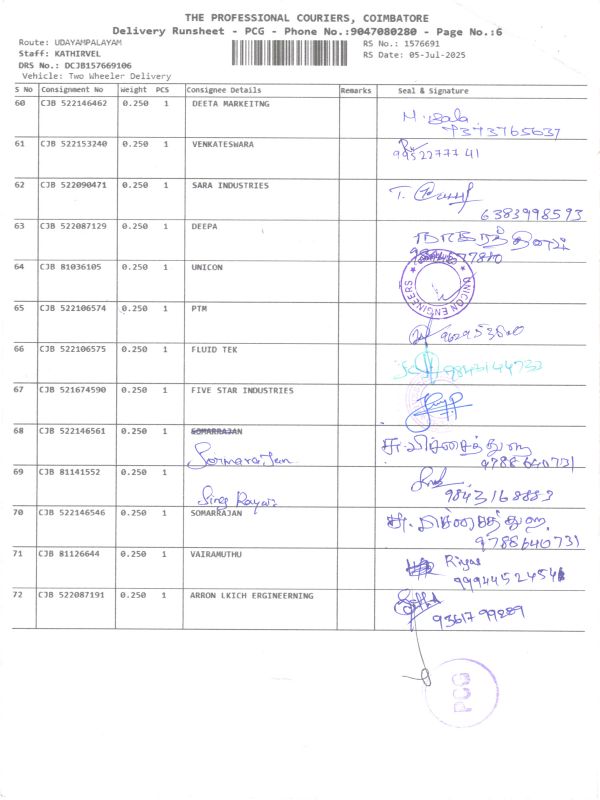 THE PROFESSIONAL COURIERS, COIMBATORE
Delivery Runsheet - PCG - Phone No.:9047080280 - Page No.:6
Route: UDAYAMPALAYAM RS No.: 1576691
Staff: KATHIRVEL RS Date: 05-Jul-2025
DRS No.: DCJB157669106
Vehicle: Two Wheeler Delivery
S No Consignment No Weight PCS Consignee Details Remarks Seal & Signature
60 CJB 522146462 0.250 1 DEETA MARKEITNG
9373765637
61 CJB 522153240 0.250 1 VENKATESWARA
9952277741
62 CJB 522090471 0.250 1 SARA INDUSTRIES
6383998593
63 CJB 522087129 0.250 1 DEEPA
64 CJB 81036105 0.250 1 UNICON
UNICON ENGINEERS
65 CJB 522106574 0.250 1 PTM
66 CJB 522106575 0.250 1 FLUID TEK
9843144732
67 CJB 521674590 0.250 1 FIVE STAR INDUSTRIES
68 CJB 522146561 0.250 1 SOMARRAJAN
9788640731
69 CJB 81141552 0.250 1
9843168883
70 CJB 522146546 0.250 1 SOMARRAJAN
9788640731
71 CJB 81126644 0.250 1 VAIRAMUTHU
Riyas
72 CJB 522087191 0.250 1 ARRON LKICH ERGINEERNING
PCG